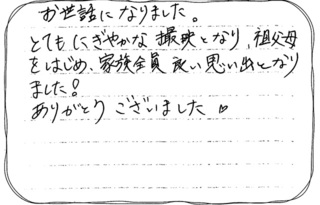 お世話になりました。
とてもにぎやかな撮映となり、祖父母
をはじめ、家族全員良い思い出となり
ました！
ありがとうございました♡